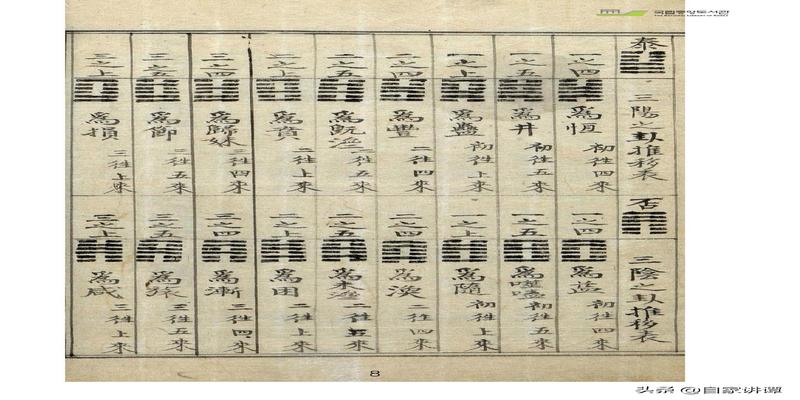 국립중앙도서관
THE NATIONAL LIBRARY OF KOREA
泰 三陽之卦推移表
否 三陰之卦推移表
一之四 爲恒 初往四來
一之四 爲益 初往四來
一之五 爲井 初往五來
一之五 爲噬嗑 初往五來
一之上 爲蠱 初往上來
一之上 爲隨 初往上來
二之四 爲豐 二往四來
二之四 爲渙 二往四來
二之五 爲旣濟 二往五來
二之五 爲未濟 二往五來
二之上 爲賁 二往上來
二之上 爲困 二往上來
三之四 爲歸妹 三往四來
三之四 爲漸 三往四來
三之五 爲節 三往五來
三之五 爲旅 三往五來
三之上 爲損 三往上來
三之上 爲咸 三往上來
8
头条 @自家讲谭